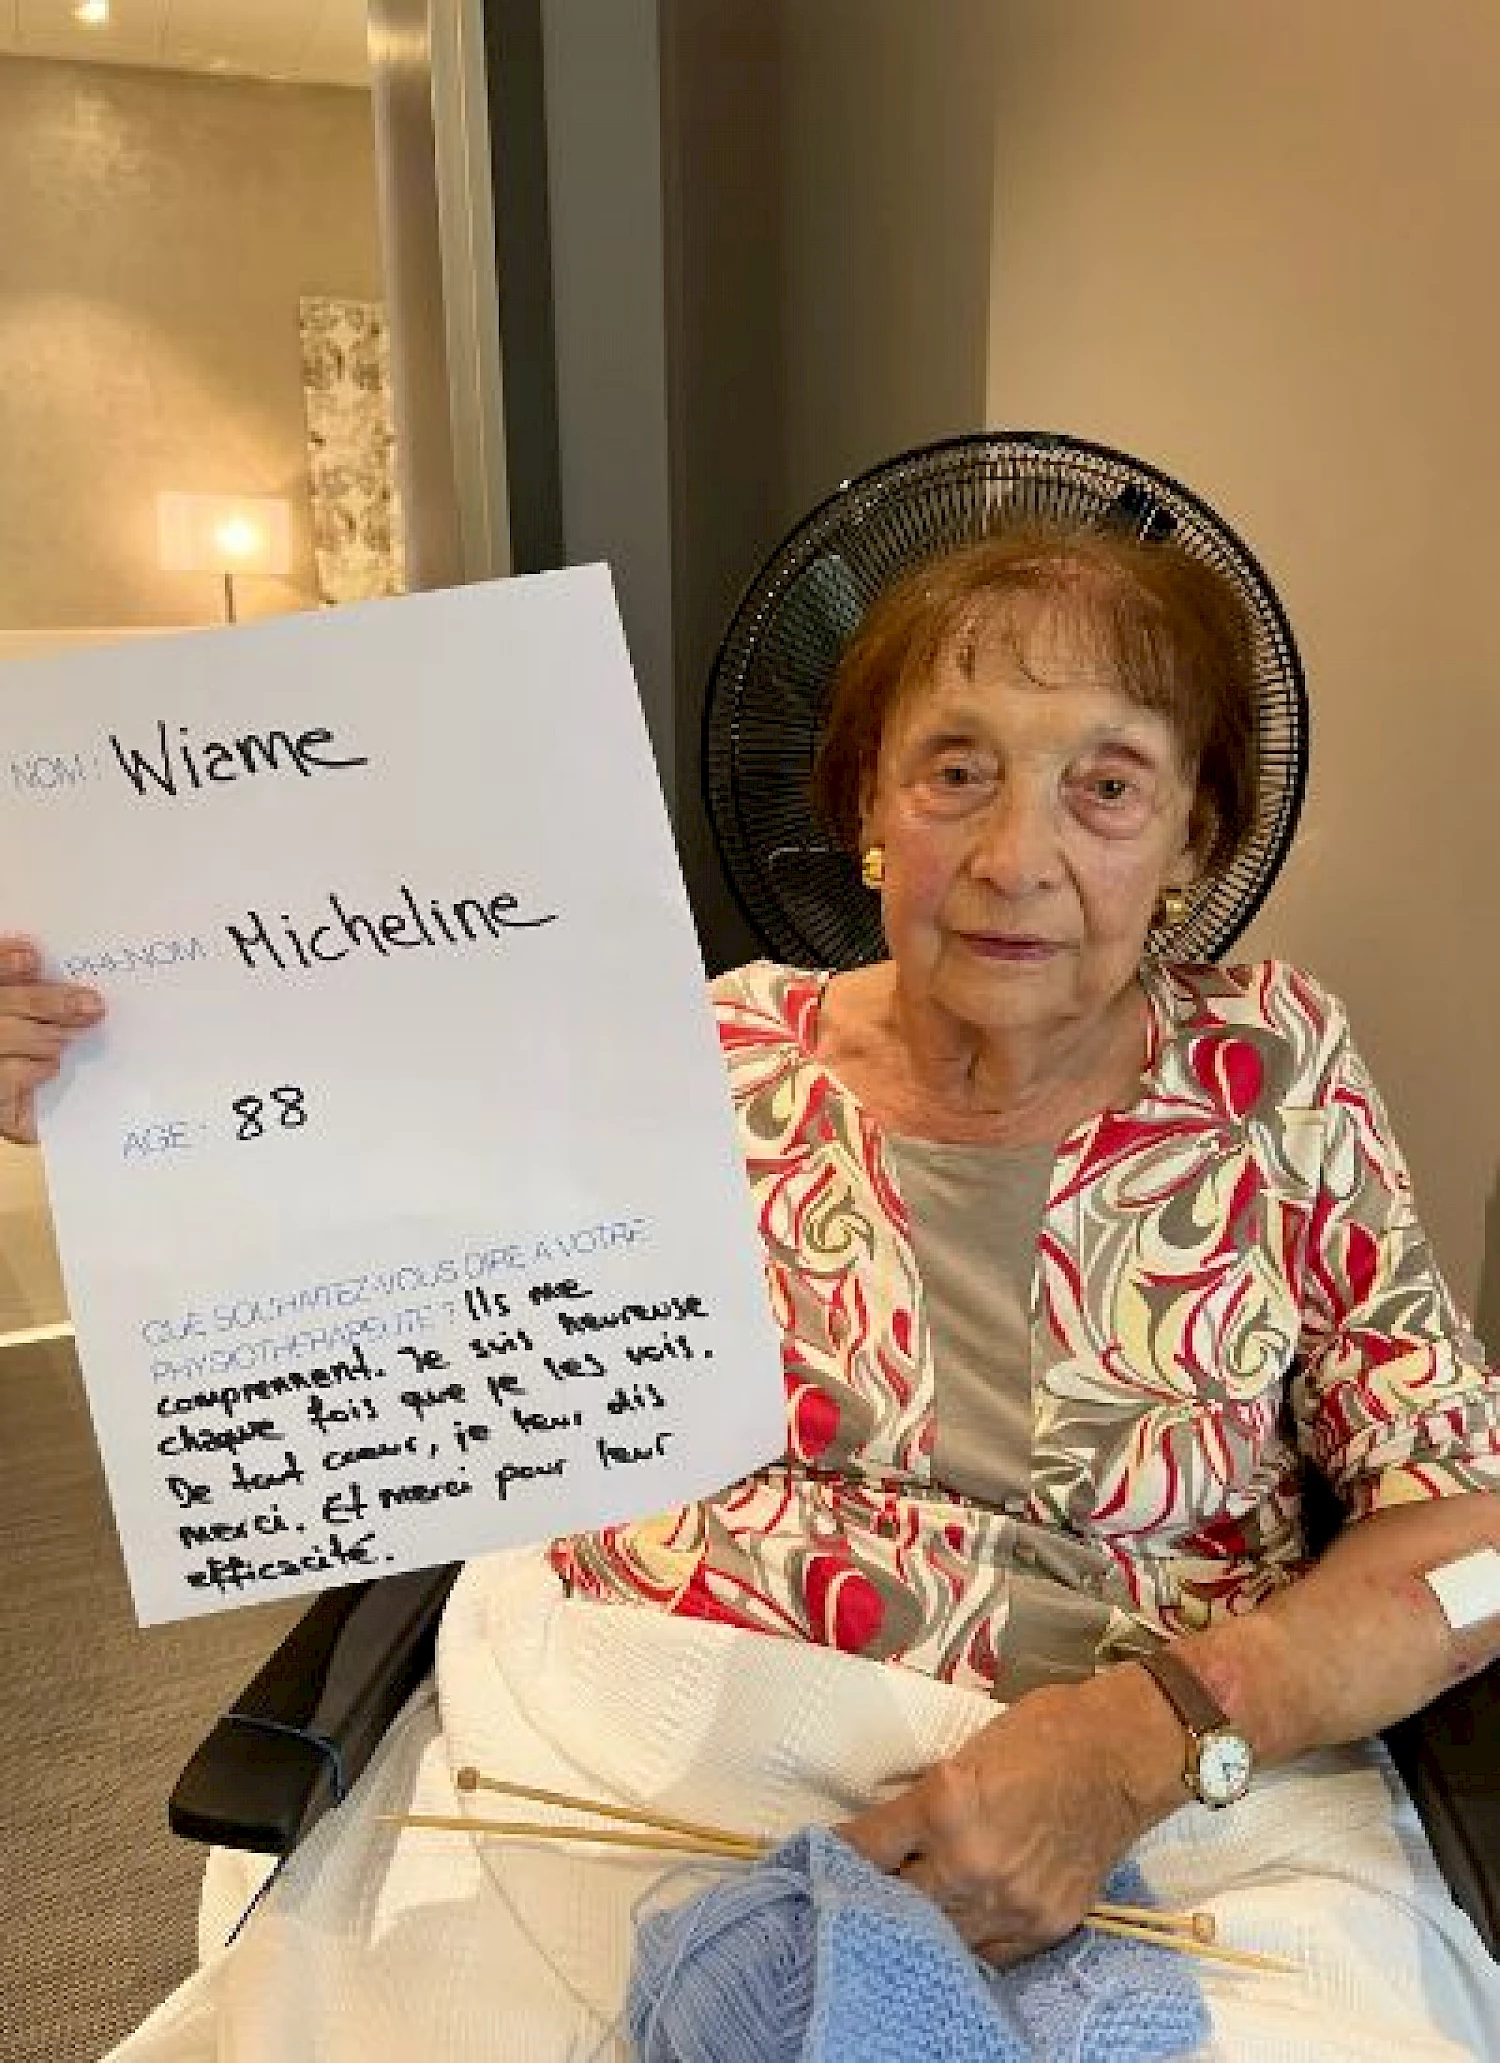 NOM : Wiame
PRÉNOM : Micheline
AGE : 88
QUE SOUHAITEZ-VOUS DIRE A VOTRE
PHYSIOTHÉRAPEUTE ? Ils me
comprennent. Je suis heureuse
chaque fois que je les vois.
De tout coeur, je leur dis
merci. Et merci pour leur
efficacité.